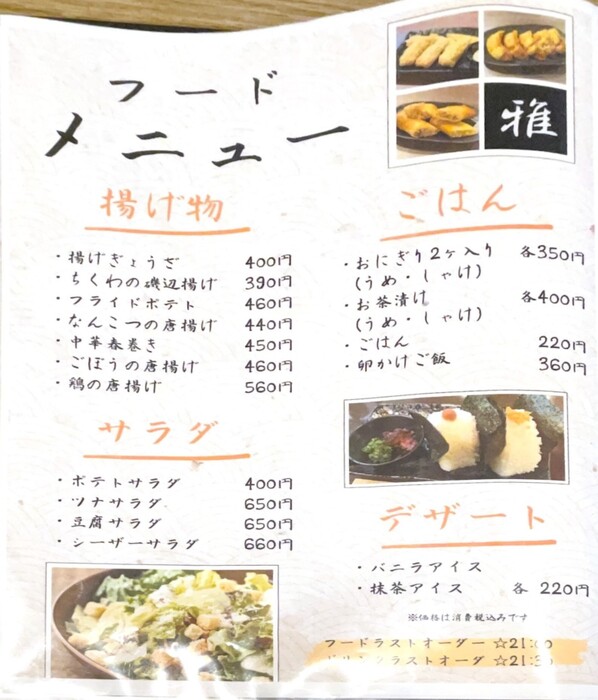 フード
メニュー
雅
揚げ物
・揚げぎょうざ 400円
・ちくわの磯辺揚げ 390円
・フライドポテト 460円
・なんこつの唐揚げ 440円
・中華春巻き 450円
・ごぼうの唐揚げ 460円
・鶏の唐揚げ 560円
サラダ
・ポテトサラダ 400円
・ツナサラダ 650円
・豆腐サラダ 650円
・シーザーサラダ 660円
ごはん
・おにぎり2ヶ入り 各350円
(うめ・しゃけ)
・お茶漬け 各400円
(うめ・しゃけ)
・ごはん 220円
・卵かけご飯 360円
デザート
・バニラアイス
・抹茶アイス 各 220円
※価格は消費税込みです
フードラストオーダー ☆21:00
ドリンクラストオーダ ☆21:30